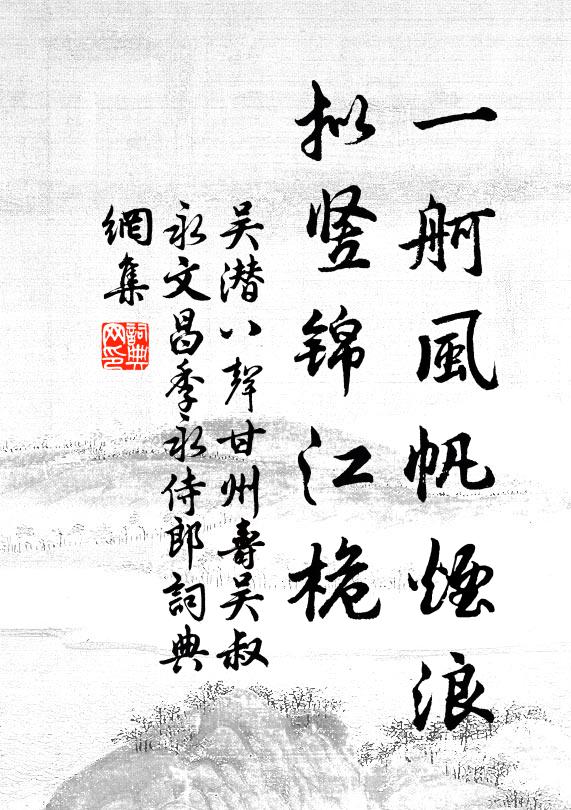 一舸風帆煙浪
拟竖锦江桅
吴潜八聲甘州壽吴叔
永文昌季永侍郎詞典
網集
詞典网印